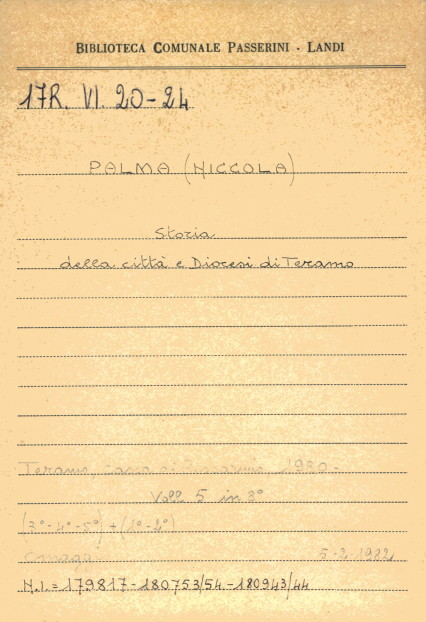 BIBLIOTECA COMUNALE PASSERINI - LANDI
17R. VI. 20-24
PALMA (NICCOLA)
Storia
della città e Diocesi di Teramo
Teramo,
Voll. 5 in 8°
(3°-4°-5°) + (1°-2°)
Omaggio 5-2-1982
N.I. = 179817-180753/54-180943/44